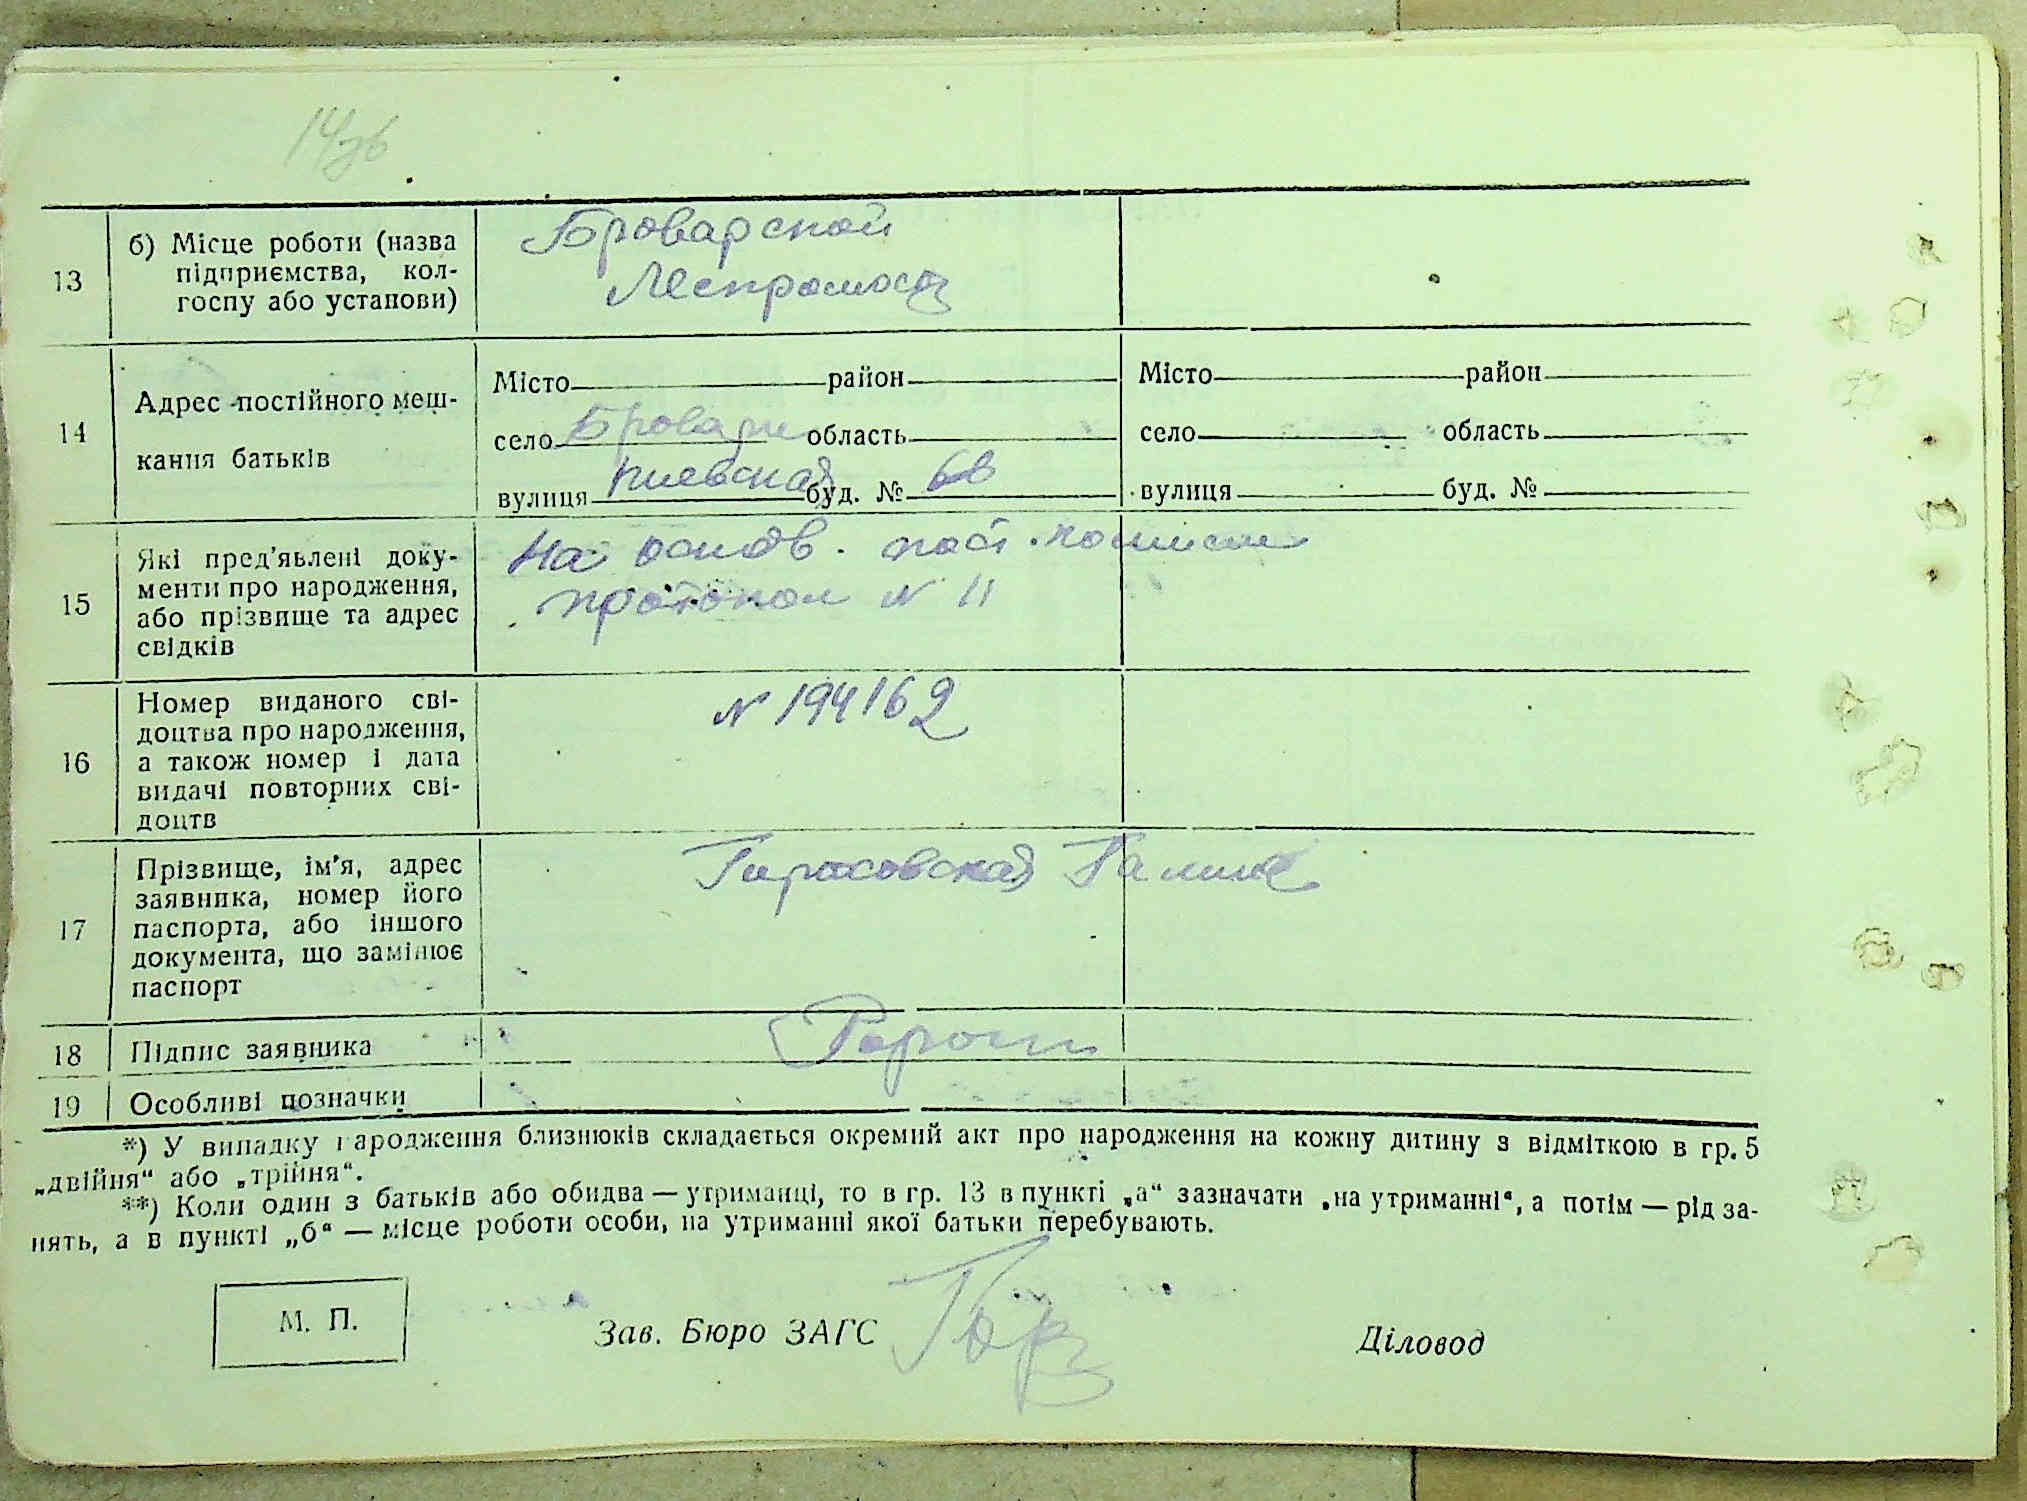 14зв
13
б) Місце роботи (назва
підприємства, кол-
госпу або установи)
Броварской
Леспромхоз
14
Адрес постійного меш-
кання батьків
Місто район
село Бровари область
вулиця Киевская буд. № 68
Місто район
село область
вулиця буд. №
15
Які пред'явлені доку-
менти про народження,
або прізвище та адрес
свідків
На основ. пост. комисии
протокол N 11
16
Номер виданого сві-
доцтва про народження,
а також номер і дата
видачі повторних сві-
доцтв
N 194162
17
Прізвище, ім'я, адрес
заявника, номер його
паспорта, або іншого
документа, що замінює
паспорт
Тарасовская Галина
18
Підпис заявника
19
Особливі позначки
*) У випадку народження близнюків складається окремий акт про народження на кожну дитину з відміткою в гр. 5
„двійня“ або „трійня“.
**) Коли один з батьків або обидва — утриманці, то в гр. 13 в пункті „а“ зазначати „на утриманні“, а потім — рід за-
нять, а в пункті „б“ — місце роботи особи, на утриманні якої батьки перебувають.
М. П.
Зав. Бюро ЗАГС
Діловод